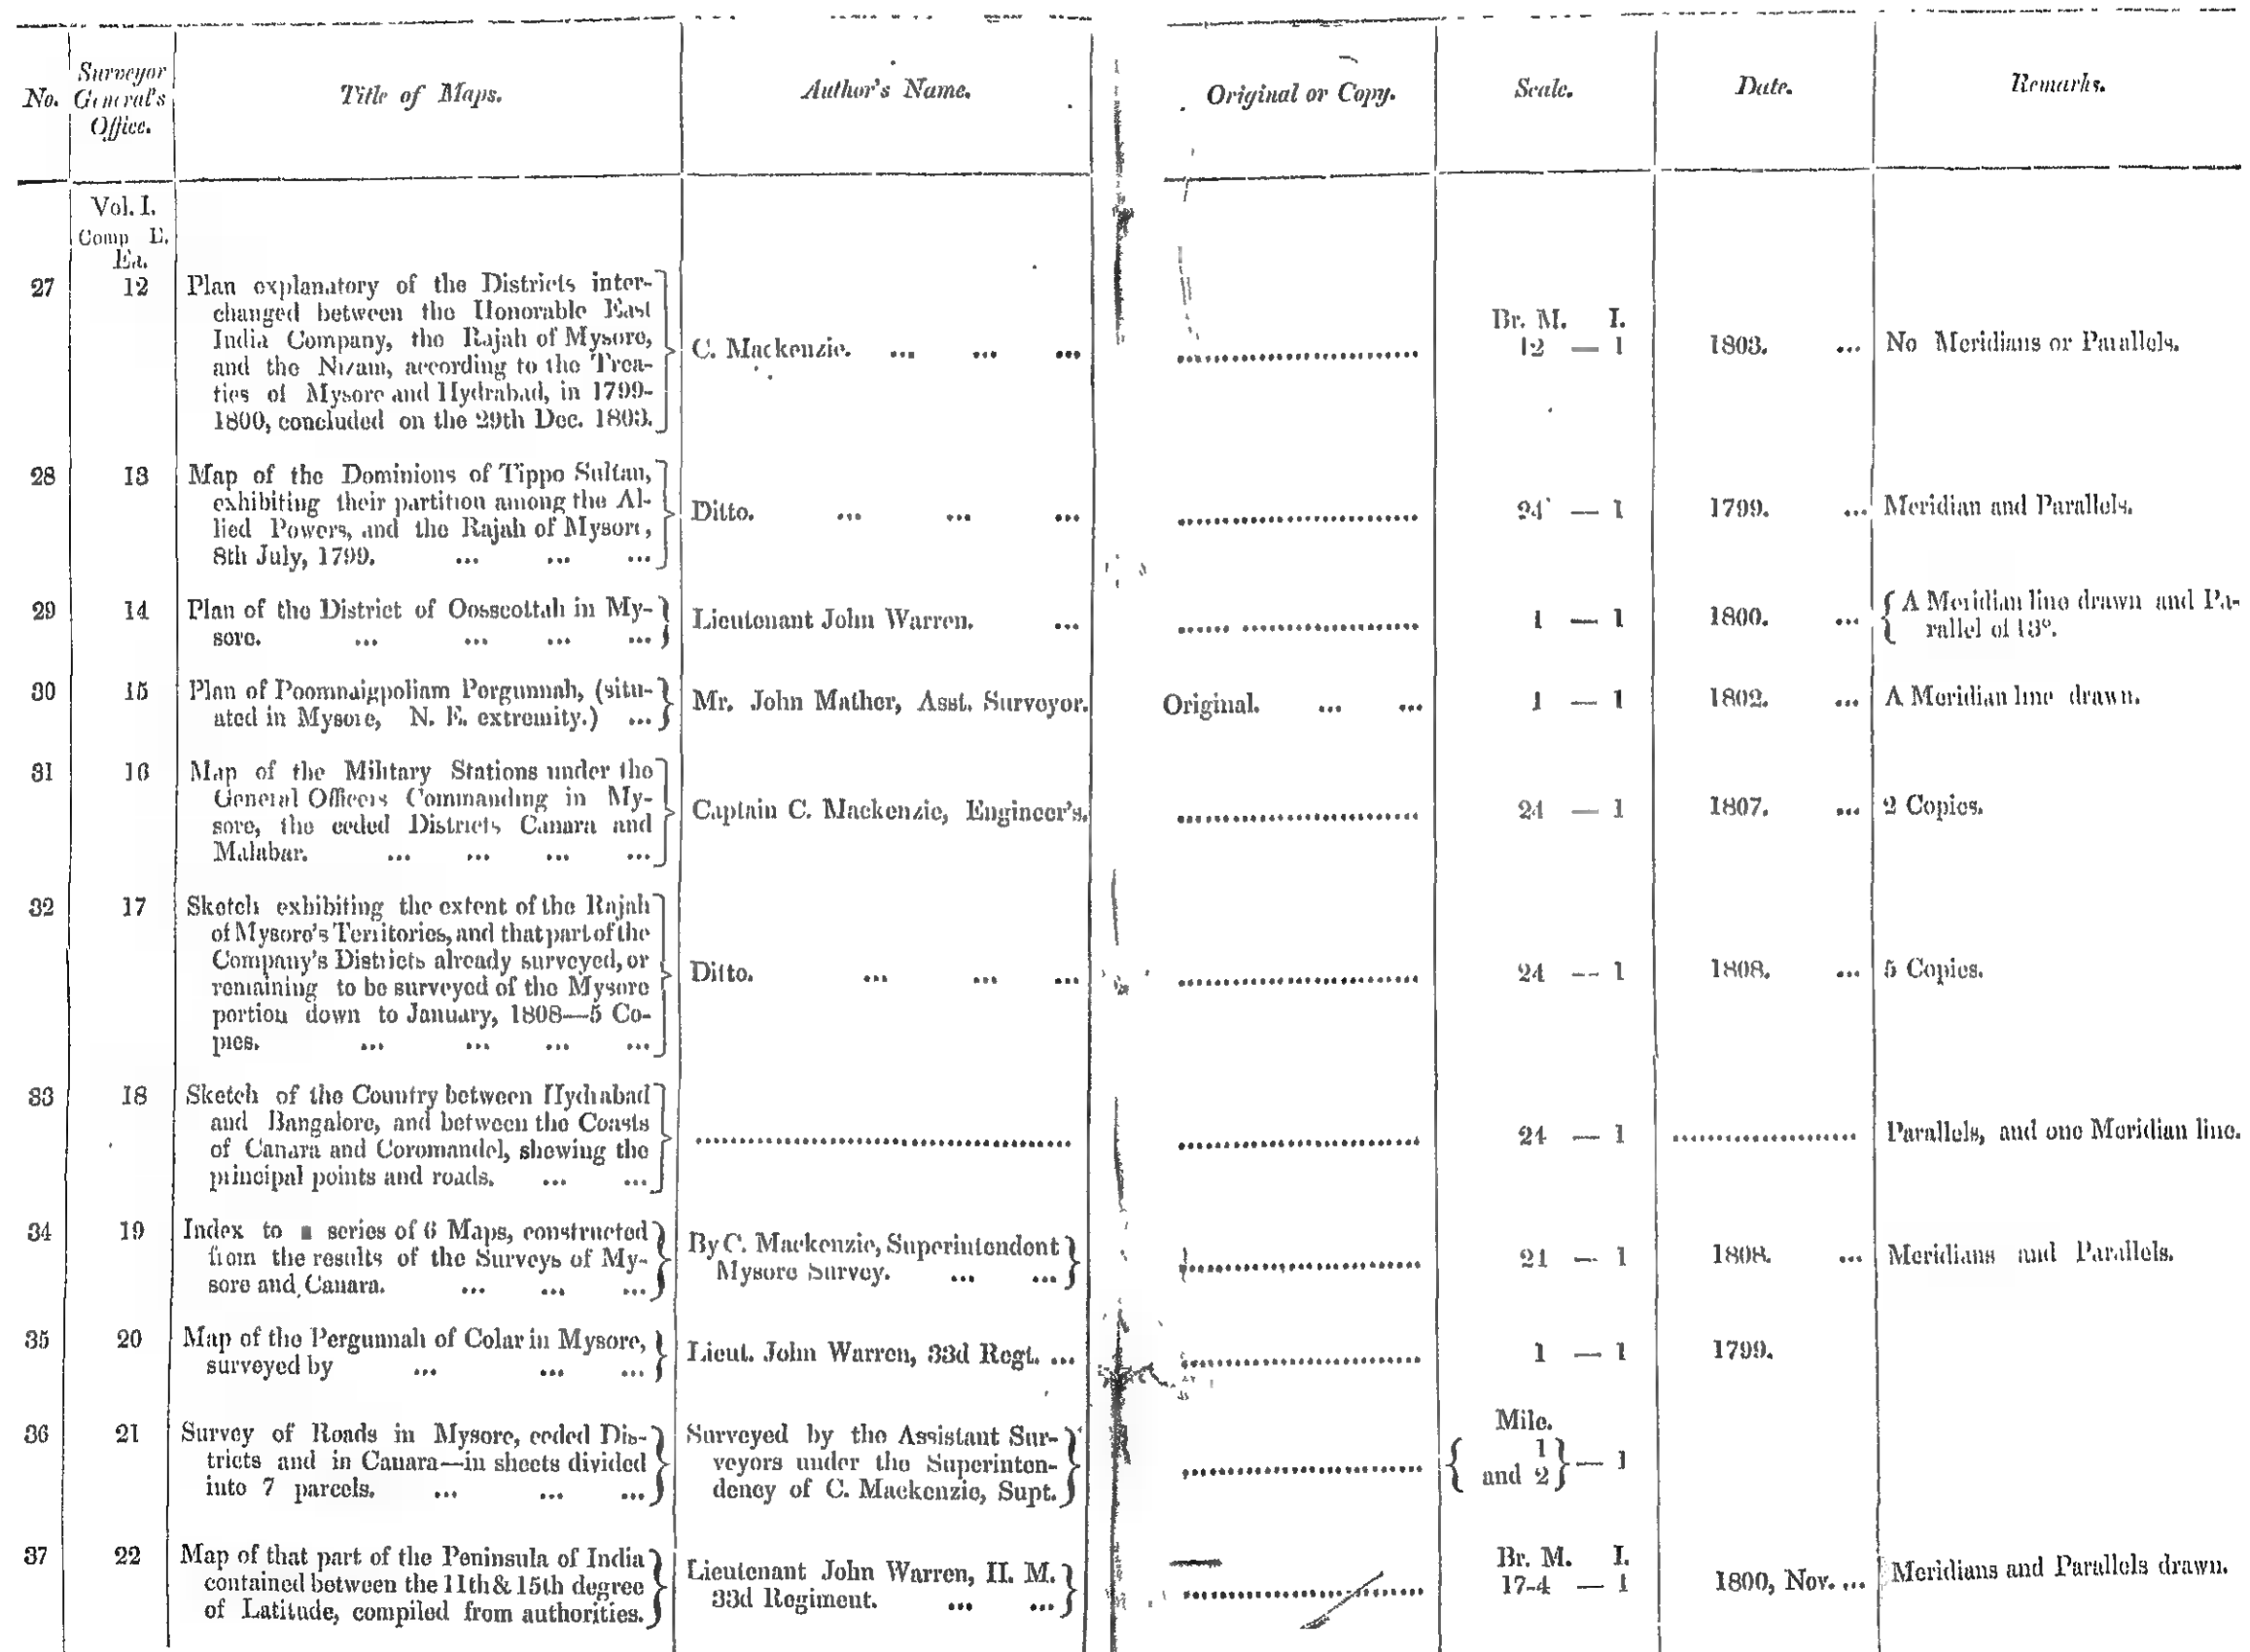 No. Surveyor General's Office. Title of Maps. Author's Name. Original or Copy. Scale. Date. Remarks.
Vol. I.
Comp E.
Ea.
27 12 Plan explanatory of the Districts inter-
changed between the Honorable East
India Company, the Rajah of Mysore,
and the Nizam, according to the Trea-
ties of Mysore and Hydrabad, in 1799-
1800, concluded on the 29th Dec. 1803.
C. Mackenzie. ... ... ...
Br. M. I.
12 — 1
1803. ...
No Meridians or Parallels.
28 13 Map of the Dominions of Tippo Sultan,
exhibiting their partition among the Al-
lied Powers, and the Rajah of Mysore,
8th July, 1799. ... ... ...
Ditto. ... ... ...
24 — 1
1799. ...
Meridian and Parallels.
29 14 Plan of the District of Oosscottah in My-
sore. ... ... ... ...
Lieutenant John Warren. ...
1 — 1
1800. ...
A Meridian line drawn and Pa-
rallel of 13°.
30 15 Plan of Poomnaigpoliam Porgunnah, (situ-
ated in Mysore, N. E. extremity.) ...
Mr. John Mather, Asst. Surveyor.
Original. ... ...
1 — 1
1802. ...
A Meridian line drawn.
31 16 Map of the Military Stations under the
General Officers Commanding in My-
sore, the ceded Districts Canara and
Malabar. ... ... ... ...
Captain C. Mackenzie, Engineer's.
24 — 1
1807. ...
2 Copies.
32 17 Sketch exhibiting the extent of the Rajah
of Mysore's Territories, and that part of the
Company's Districts already surveyed, or
remaining to be surveyed of the Mysore
portion down to January, 1808—5 Co-
pies. ... ... ... ...
Ditto. ... ... ...
24 — 1
1808. ...
5 Copies.
33 18 Sketch of the Country between Hydrabad
and Bangalore, and between the Coasts
of Canara and Coromandel, shewing the
principal points and roads. ... ...
24 — 1
Parallels, and one Meridian line.
34 19 Index to series of 6 Maps, constructed
from the results of the Surveys of My-
sore and Canara. ... ... ...
By C. Mackenzie, Superintendent
Mysore Survey. ... ...
24 — 1
1808. ...
Meridians and Parallels.
35 20 Map of the Pergunnah of Colar in Mysore,
surveyed by ... ... ...
Lieut. John Warren, 33d Regt. ...
1 — 1
1799.
36 21 Survey of Roads in Mysore, ceded Dis-
tricts and in Canara—in sheets divided
into 7 parcels. ... ... ...
Surveyed by the Assistant Sur-
veyors under the Superinten-
dency of C. Mackenzie, Supt.
Mile.
1
and 2 — 1
37 22 Map of that part of the Peninsula of India
contained between the 11th & 15th degree
of Latitude, compiled from authorities.
Lieutenant John Warren, H. M.
33d Regiment. ... ...
Br. M. I.
17-4 — 1
1800, Nov. ...
Meridians and Parallels drawn.